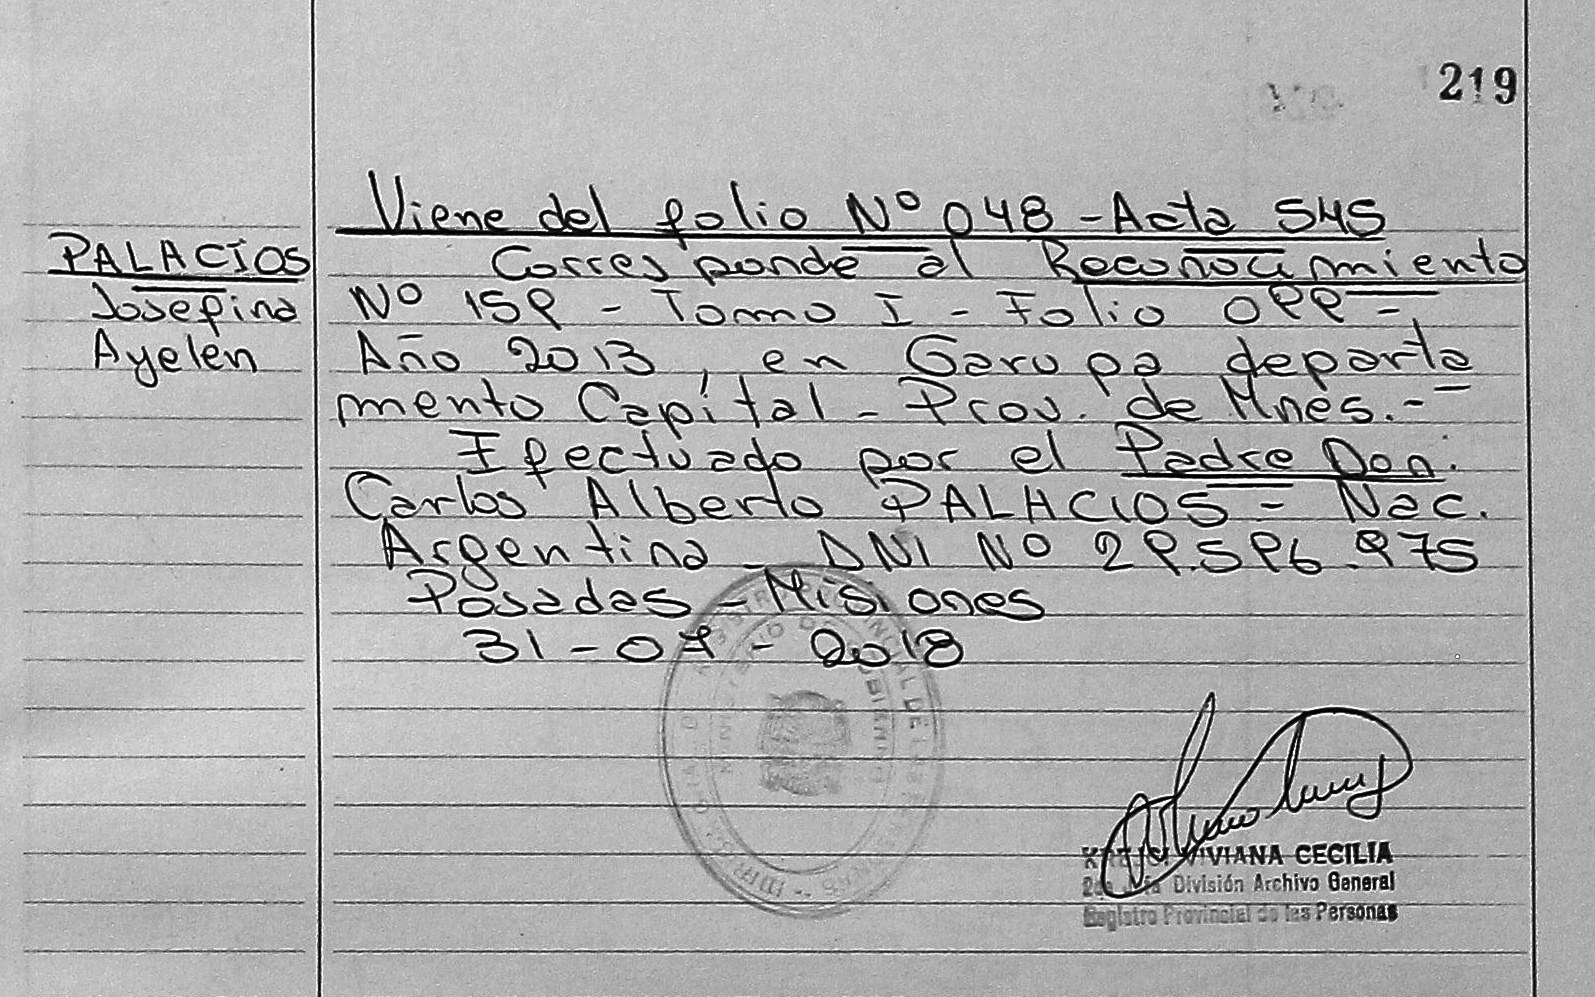 219
PALACIOS
Josefina
Ayelén
Viene del folio Nº 048 - Acta 545
Corresponde al Reconocimiento
Nº 159 - Tomo I - Folio 099 -
Año 2013, en Garupá departa
mento Capital - Prov. de Mnes. -
Efectuado por el Padre Don.
Carlos Alberto PALACIOS - Nac.
Argentina - DNI Nº 29.596.975
Posadas - Misiones
31-07-2018
VIVIANA CECILIA
División Archivo General
Registro Provincial de las Personas